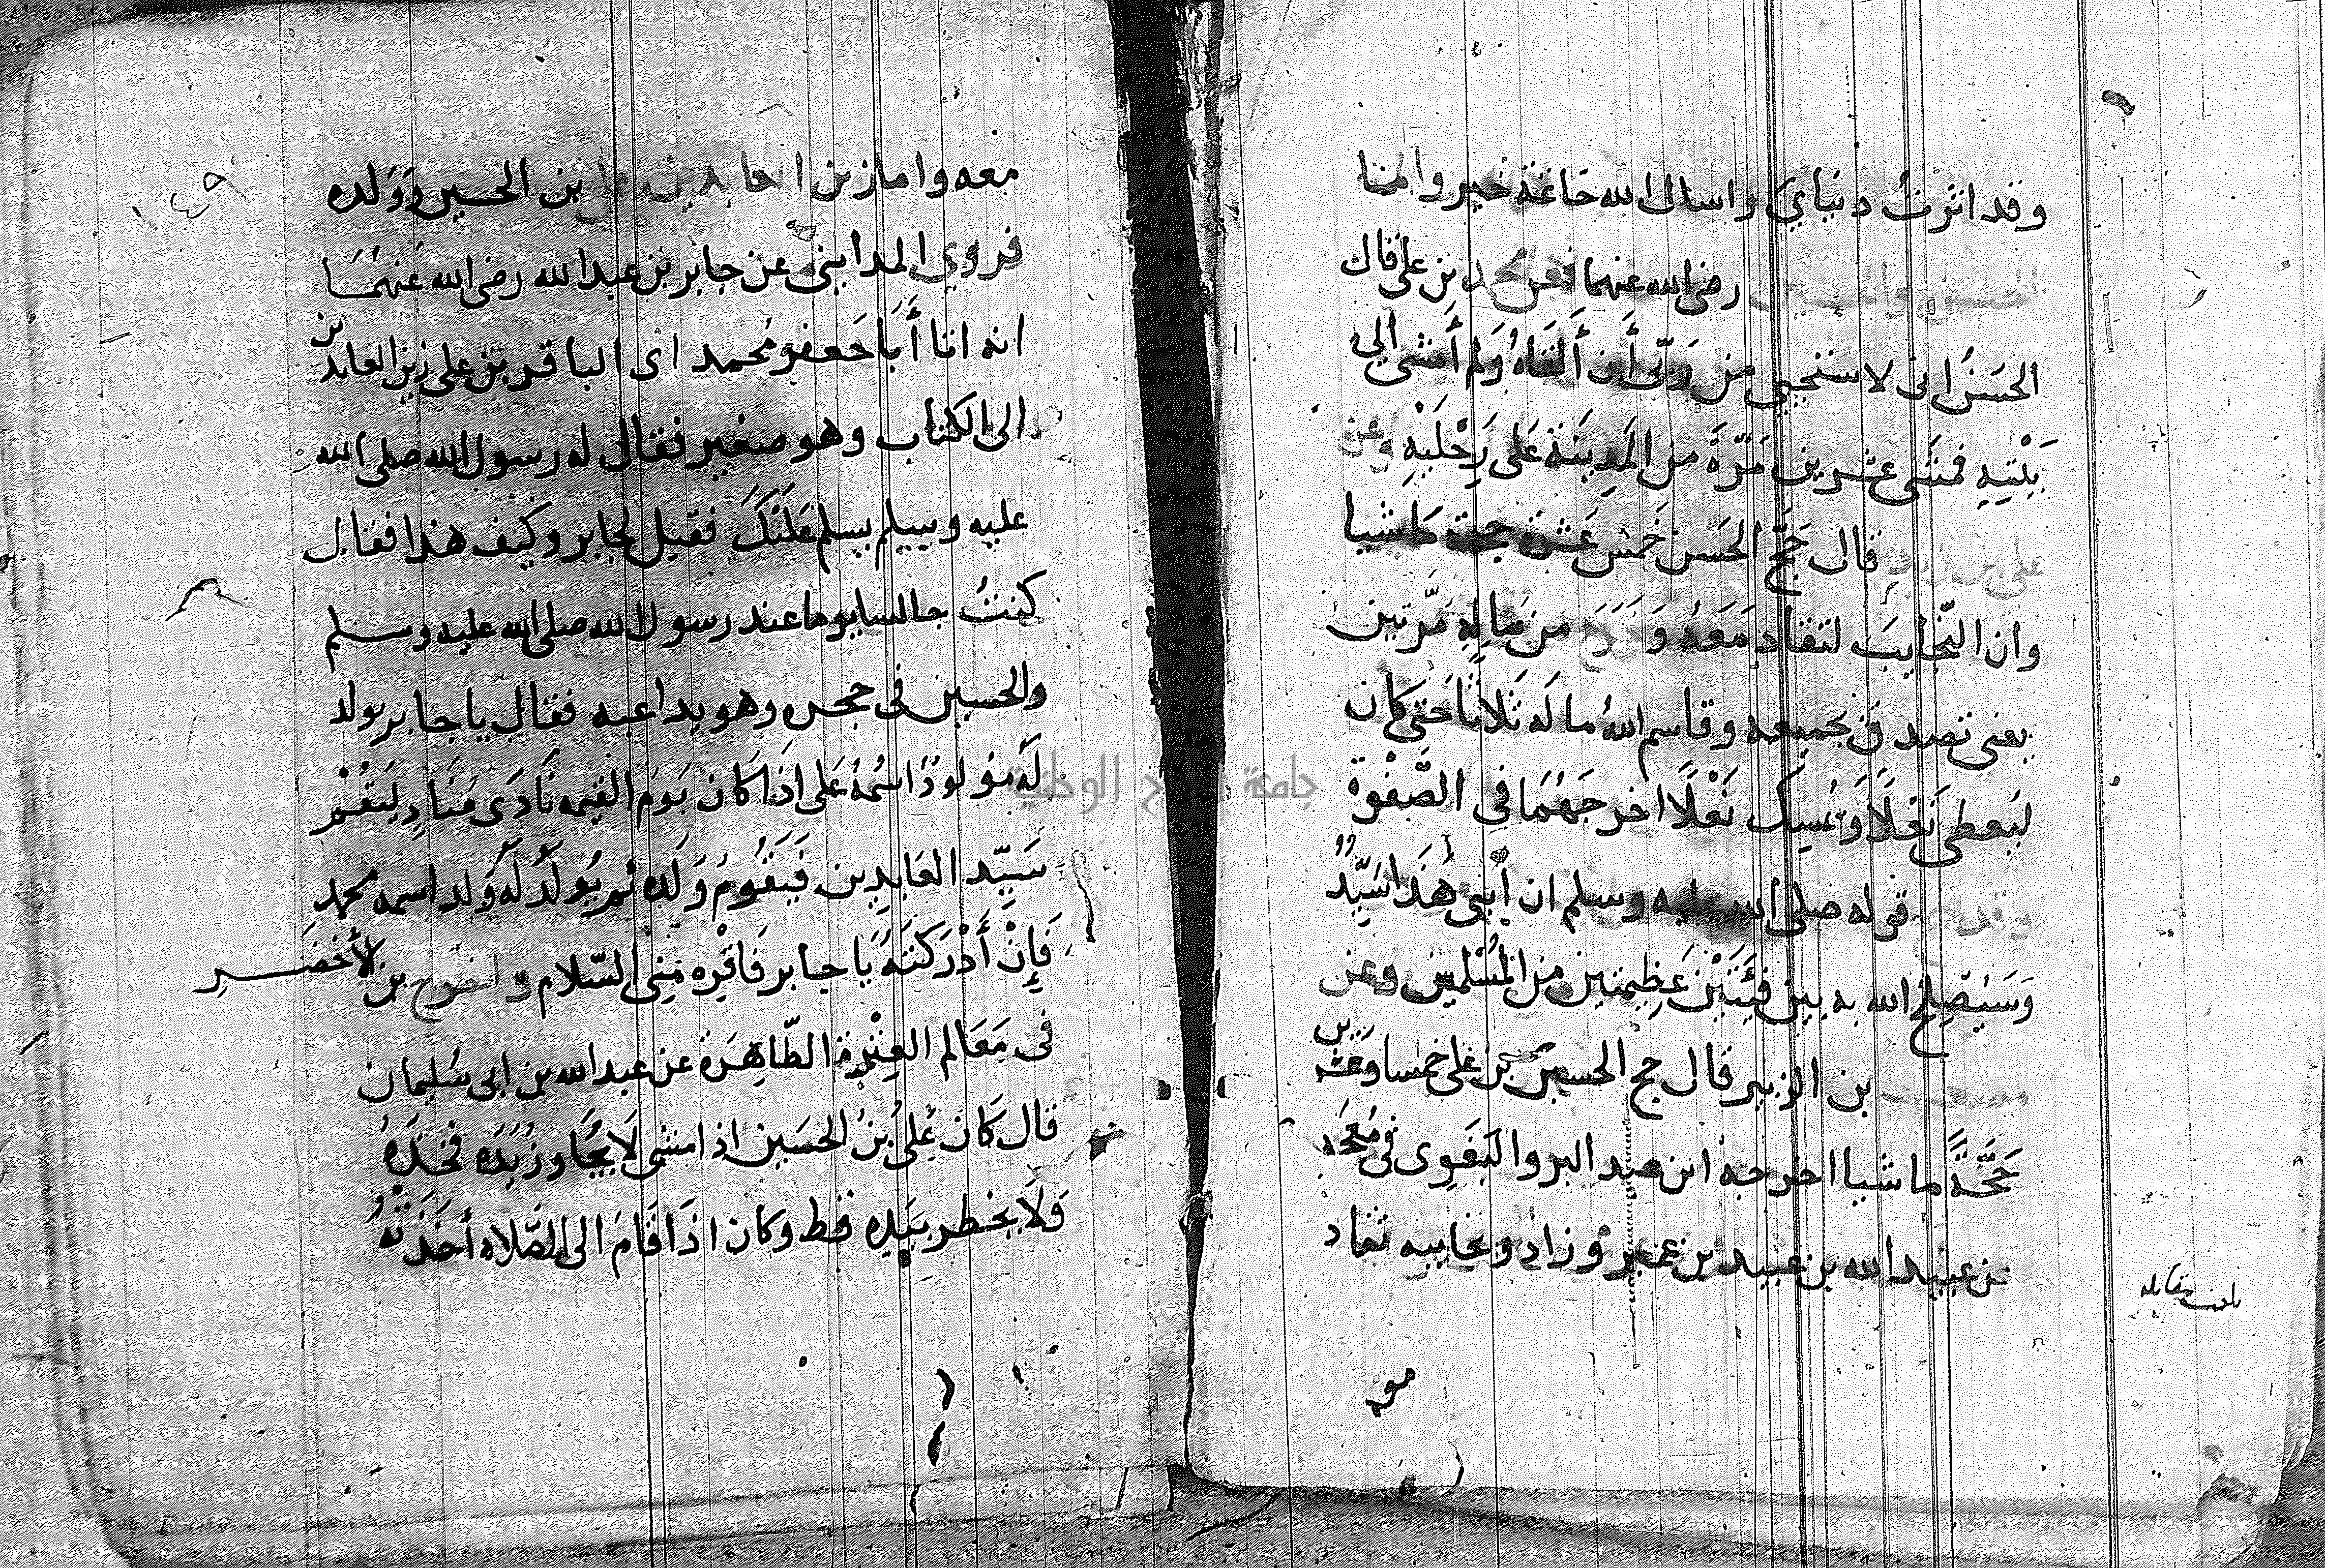 وقد اثرت دنياي واسال الله خاتمة خير والمنا
الحسن والحسين رضي الله عنهما فعن محمد بن علي قال
الحسَنُ انى لاستحيي من رَبّي أَن أَلقَاهُ وَلم أَمشى الي
بَيْتِهِ فمشَى عشرين مَرّةً من المَدِينَة عَلى رِجْليْهِ وعن
علي بن زيد قال حَجّ الحَسن خَمسَ عَشرة حجة مَاشيا
وان النّجايبَ لتقاد مَعَهُ وَخرَجَ من مَالِهِ مَرّتين
يعنى تصدق بجميعه وقاسم اللهُ مالَه ثَلاثا حَتى كان
ليعطى نَعْلًا وَيُمسِك نَعْلًا اخرجَهُمَا فى الصَّفْوة
وقد قوله صلى الله عليه وسلم ان أبنى هَذَا سَيّدٌ
وَسَيُصْلِح الله به بين فِئَتَيْن عَظِيمتين من المُسْلمين وعن
مصعب بن الزبير قال حج الحسين بن على خمسا وَعشرين
حَجّةً ماشيا اخرجه ابن عبد البر والبَغَوِى فى مُعْجَمه
عن عبيد الله بن عبيد بن عمير وزاد ونجايبه تقاد
بلغت مقابلة
مع
١٤٩
معه واما زين العابدين علي بن الحسين وَوَلده
فروي المدايني عن جابر بن عبد الله رضى الله عَنهمَا
انه اتا أَبَا جَعفر محمد اى الباقر بن على زين العابدين
الى الكتاب وهو صغير فقال له رسول الله صلى الله
عليه وسلم يسلم عَلَيْكَ فقيل لجابر وكيف هَذا فقال
كنتُ جالسا يوما عند رسول الله صلى الله عليه وسلم
والحسين فى حجره وهو يداعبه فقال يا جابر يولد
لَه مَوْلوُدٌ اسْمُهُ عَلى اذَا كان يَوم القيمه نَادَى مُنَادٍ ليَقُمْ
سَيّد العَابِدِين فَيَقُومُ وَلَده ثم يُولَدُ لَهُ وَلد اسمه محمد
فَإنْ أَدْرَكتَهُ يَا جابر فَاقْره مِنى السّلام واخرج بن الأخضَر
فى مَعَالم العِتْرة الطّاهِرَة عن عبد الله بن ابى سُليمان
قال كَان عَلىُ بنُ الحسَين اذا مشى لَا يُجَاوزُ يَدَه فَخذَهُ
وَلَا يخطر بيَدِه قط وكان اذَا قَامَ الى الصّلاه أخَذَتْهُ
جامعة النجاح الوطنية